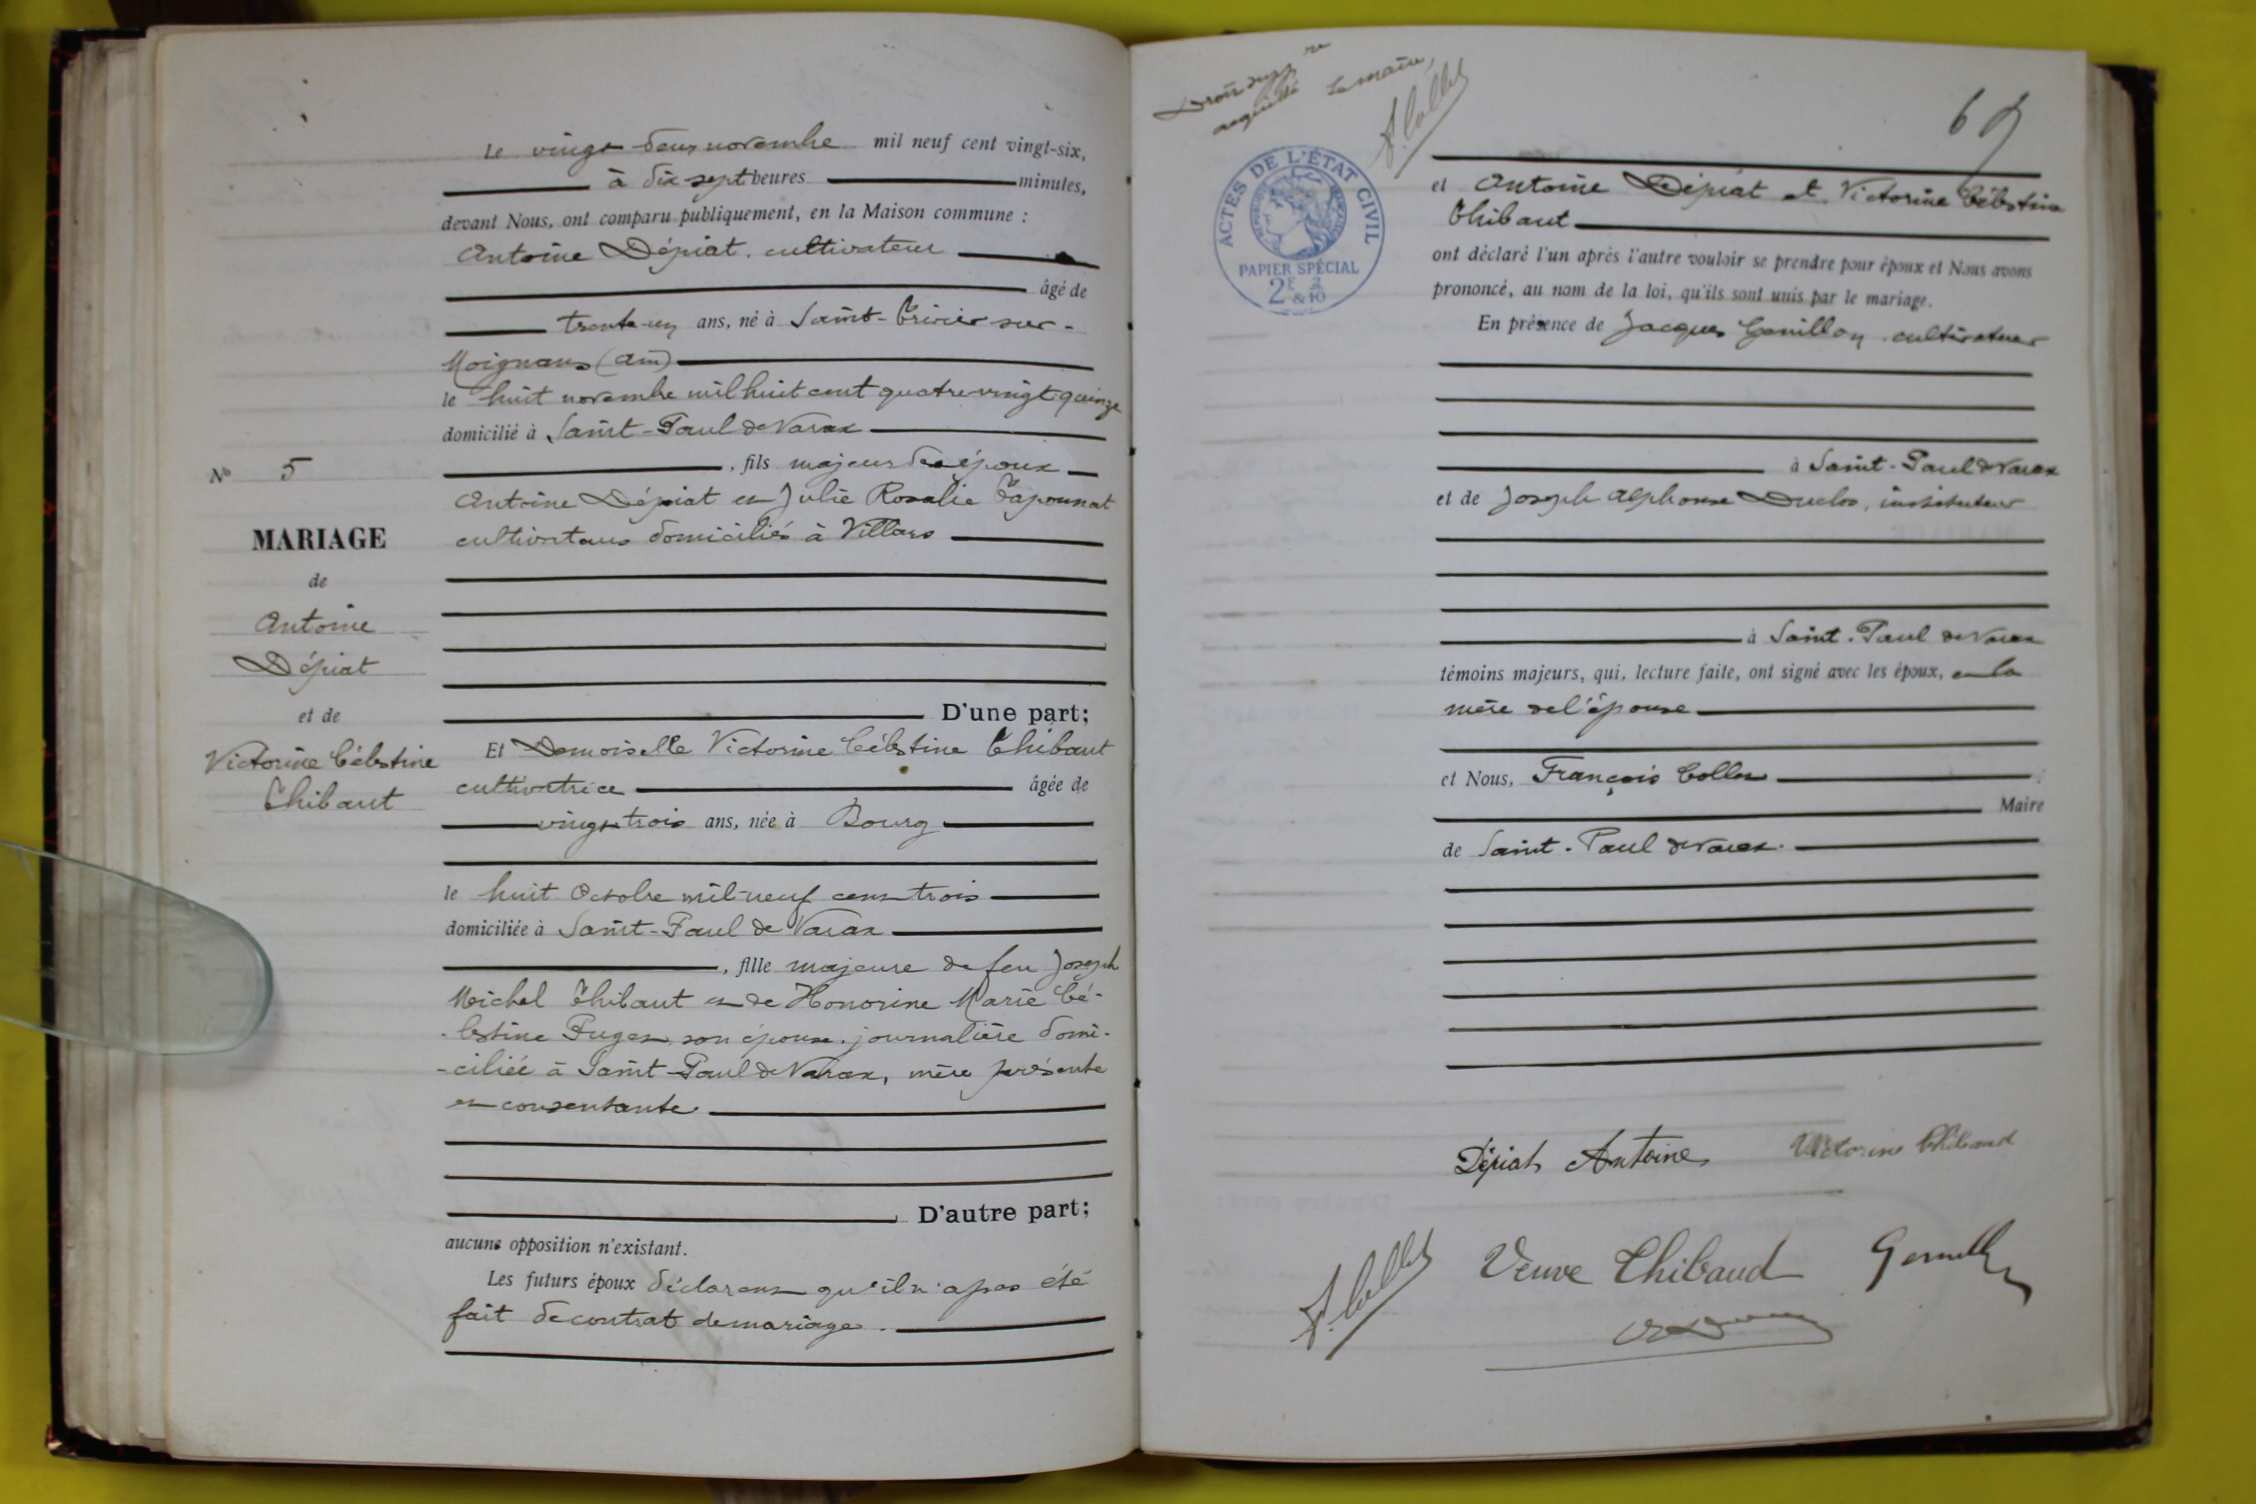 Le vingt deux novembre mil neuf cent vingt-six,
à dix-sept heures minutes,
devant Nous, ont comparu publiquement, en la Maison commune :
Antoine Dépiat. cultivateur
âgé de
trente-un ans, né à Saint-Trivier-sur-
Moignans (Ain)
le huit novembre mil huit cent quatre vingt quinze
domicilié à Saint-Paul de Varax
, fils majeur des époux
Antoine Dépiat et Julie Rosalie Taponnat
cultivateurs domiciliés à Villars
D'une part;
Et Demoiselle Victorine Célestine Thibaut
cultivatrice âgée de
vingt trois ans, née à Bourg
le huit Octobre mil neuf cent trois
domiciliée à Saint-Paul de Varax
, fille majeure de feu Joseph
Michel Thibaut et de Honorine Marie Cé-
-lestine Puget, son épouse. journalière domi-
-ciliée à Saint-Paul de Varax, mère présente
et consentante.
D'autre part;
aucune opposition n'existant.
Les futurs époux déclarent qu'il n'a pas été
fait de contrat de mariage.
No 5
MARIAGE
de
Antoine
Dépiat
et de
Victorine Célestine
Thibaut
acquitté Le maire,
F. Collet
ACTES DE L'ÉTAT CIVIL
PAPIER SPÉCIAL
2E & 2/10
69
et Antoine Dépiat et Victorine Célestine
Thibaut
ont déclaré l'un après l'autre vouloir se prendre pour époux et Nous avons
prononcé, au nom de la loi, qu'ils sont unis par le mariage.
En présence de Jacques cultivateur
à Saint-Paul de Varax
et de Joseph Alphonse Duclos, instituteur
à Saint-Paul de Varax
témoins majeurs, qui, lecture faite, ont signé avec les époux, et la
mère de l'épouse
et Nous, François Collet
Maire
de Saint-Paul de Varax.
Dépiat Antoine
Victorine Thibaud
F. Collet
Veuve Thibaud